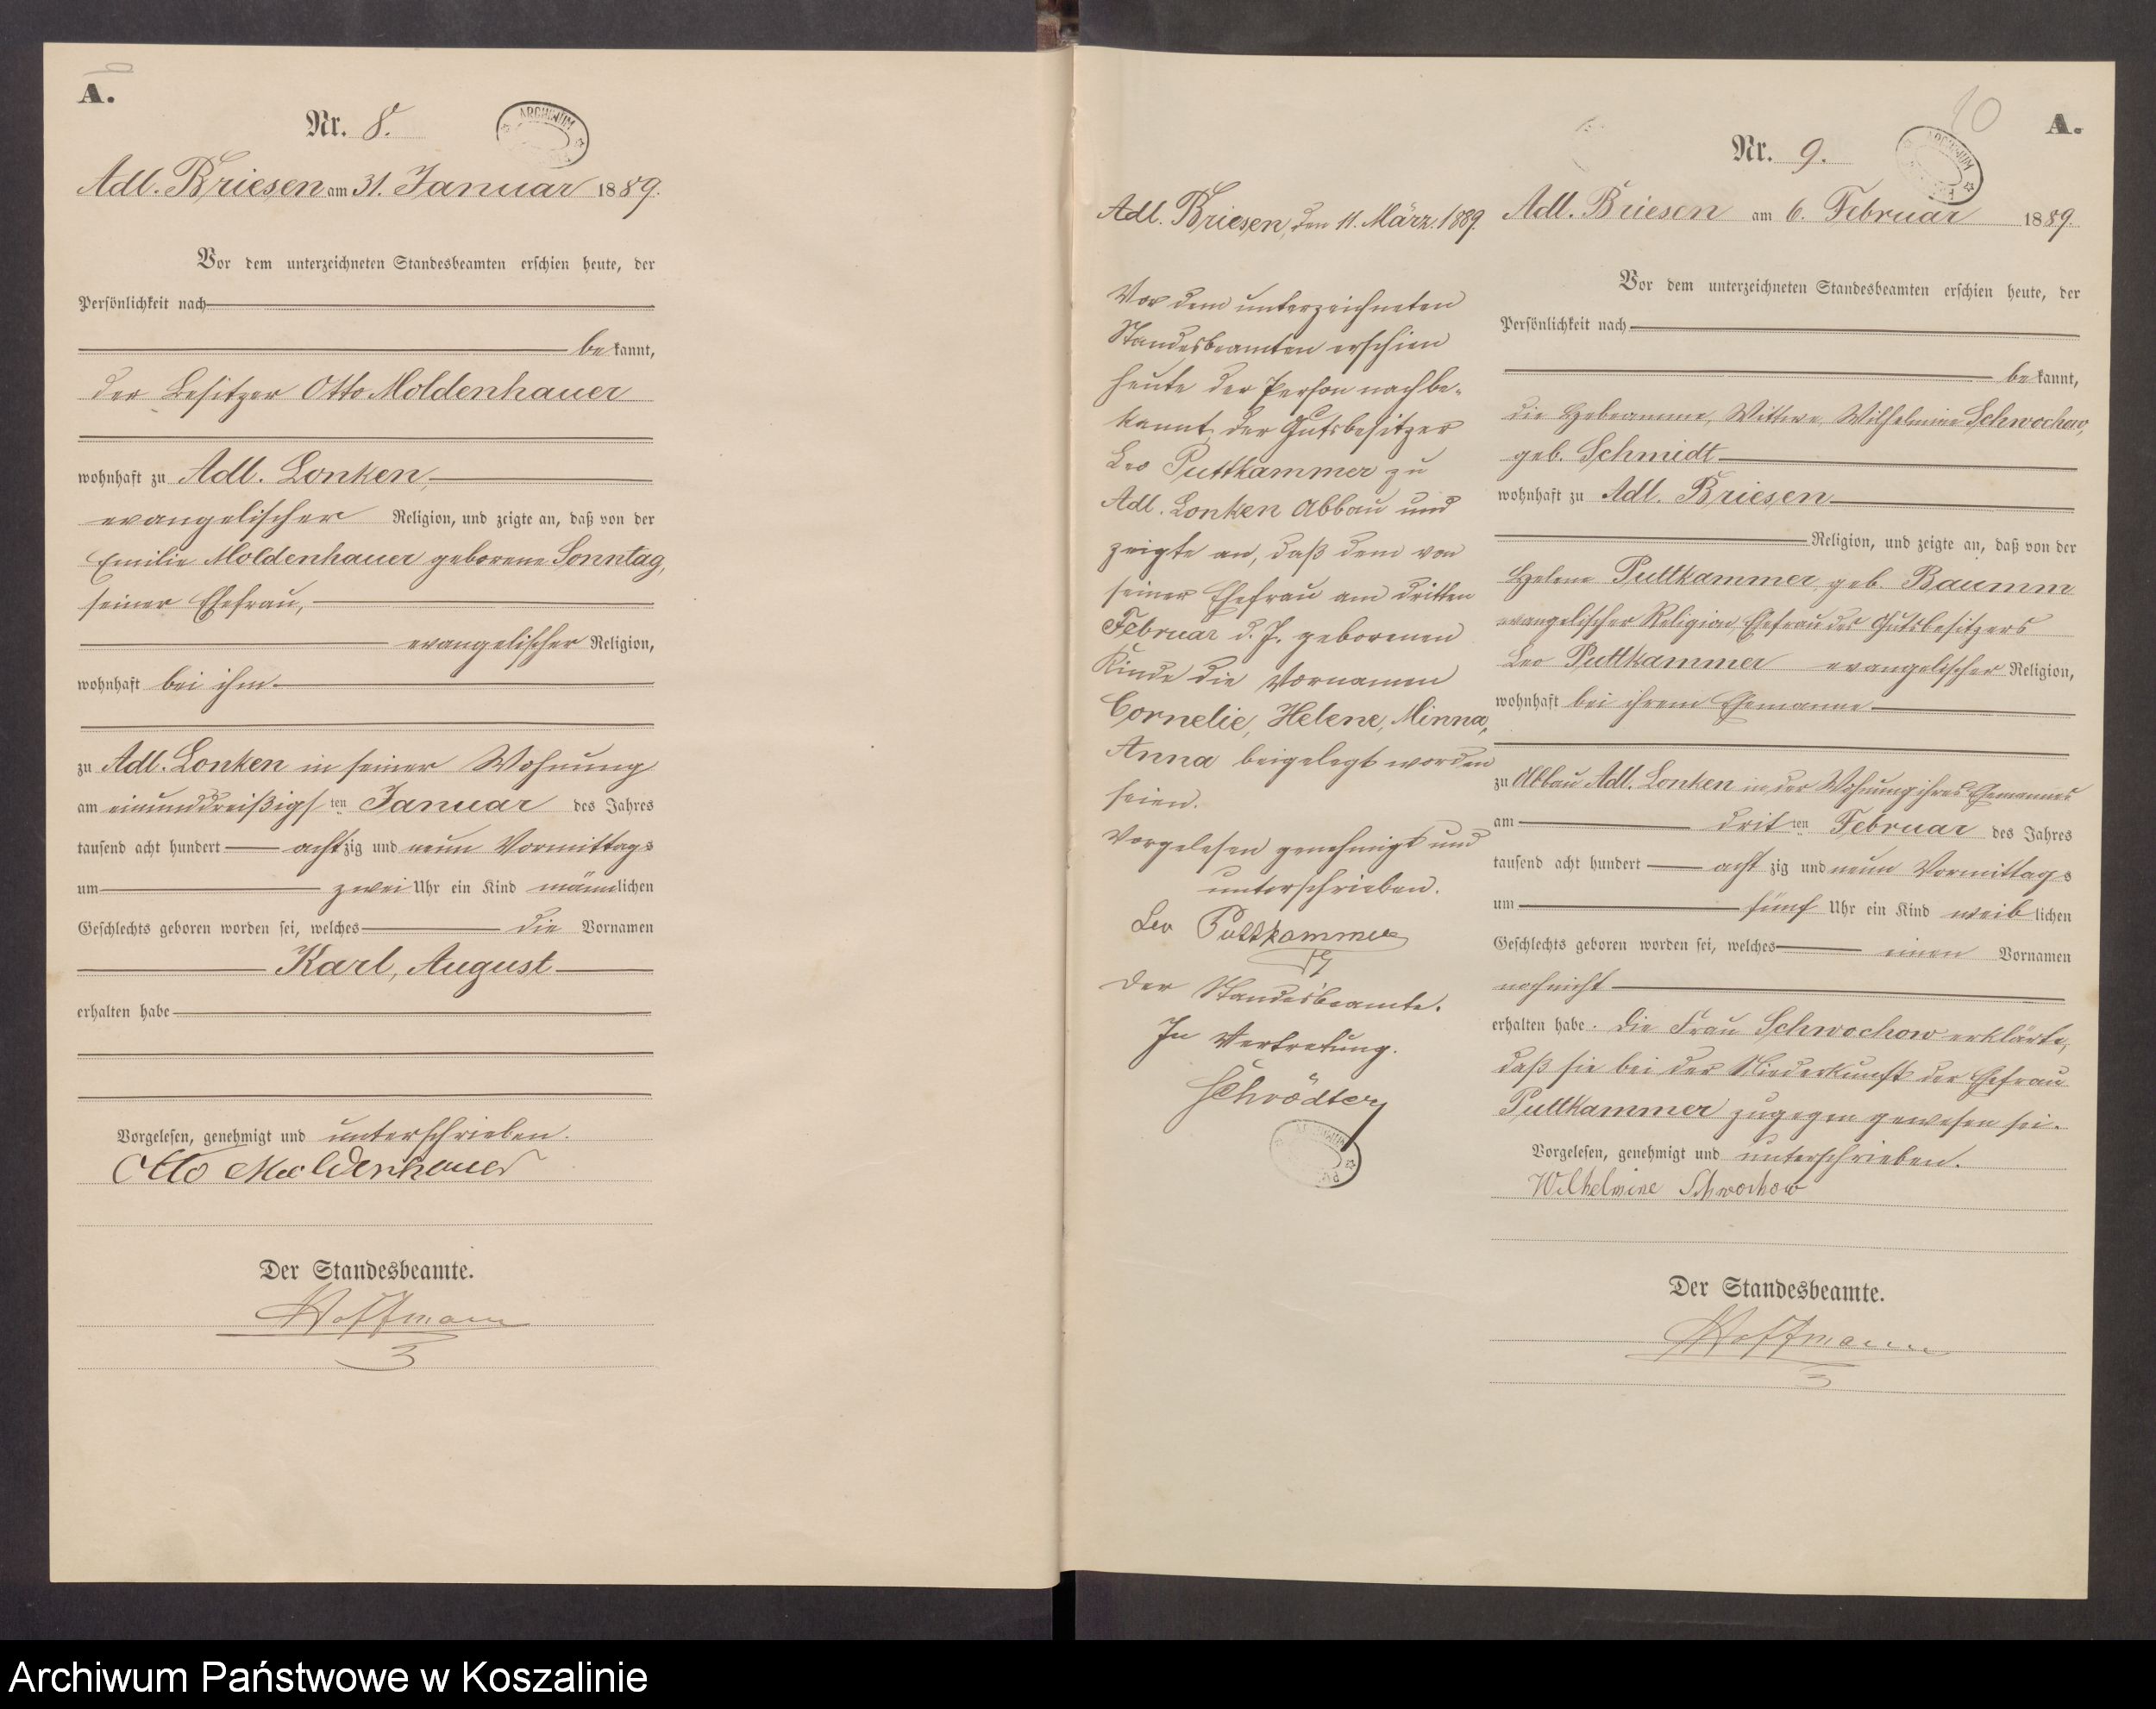 A.
Nr. 8.
ARCHIWUM
Adl. Briesen am 31. Januar 1889.
Vor dem unterzeichneten Standesbeamten erschien heute, der
Persönlichkeit nach
bekannt,
der Besitzer Otto Moldenhauer
wohnhaft zu Adl. Lonken,
evangelischer Religion, und zeigte an, daß von der
Emilie Moldenhauer geborene Sonntag,
seiner Ehefrau,
evangelischer Religion,
wohnhaft bei ihm
zu Adl. Lonken in seiner Wohnung
am einunddreißigsten Januar des Jahres
tausend acht hundert achtzig und neun Vormittags
um zwei Uhr ein Kind männlichen
Geschlechts geboren worden sei, welches die Vornamen
Karl, August
erhalten habe
Vorgelesen, genehmigt und unterschrieben.
Otto Moldenhauer
Der Standesbeamte.
Hoffmann
Adl. Briesen, den 11. März 1889.
Vor dem unterzeichneten
Standesbeamten erschien
heute der Person nach be-
kannt, der Gutsbesitzer
Leo Puttkammer zu
Adl. Lonken Abbau und
zeigte an, daß dem von
seiner Ehefrau am dritten
Februar d. J. geborenen
Kinde die Vornamen
Cornelie, Helene, Minna,
Anna beigelegt worden
seien.
Vorgelesen genehmigt und
unterschrieben.
Leo Puttkammer
Der Standesbeamte.
In Vertretung.
Schrödter
ARCHIWUM
10
A.
Nr. 9.
ARCHIWUM
Adl. Briesen am 6. Februar 1889.
Vor dem unterzeichneten Standesbeamten erschien heute, der
Persönlichkeit nach
bekannt,
die Hebeamme, Wittwe Wilhelmine Schwochow,
geb. Schmidt
wohnhaft zu Adl. Briesen
Religion, und zeigte an, daß von der
Helene Puttkammer, geb. Baumm
evangelischer Religion, Ehefrau des Gutsbesitzers
Leo Puttkammer evangelischer Religion,
wohnhaft bei ihrem Ehemanne
zu Abbau Adl. Lonken in der Wohnung ihres Ehemannes
am dritten Februar des Jahres
tausend acht hundert achtzig und neun Vormittags
um fünf Uhr ein Kind weiblichen
Geschlechts geboren worden sei, welches einen Vornamen
noch nicht
erhalten habe. Die Frau Schwochow erklärte,
daß sie bei der Niederkunft der Ehefrau
Puttkammer zugegen gewesen sei.
Vorgelesen, genehmigt und unterschrieben.
Wilhelmine Schwochow
Der Standesbeamte.
Hoffmann
Archiwum Państwowe w Koszalinie